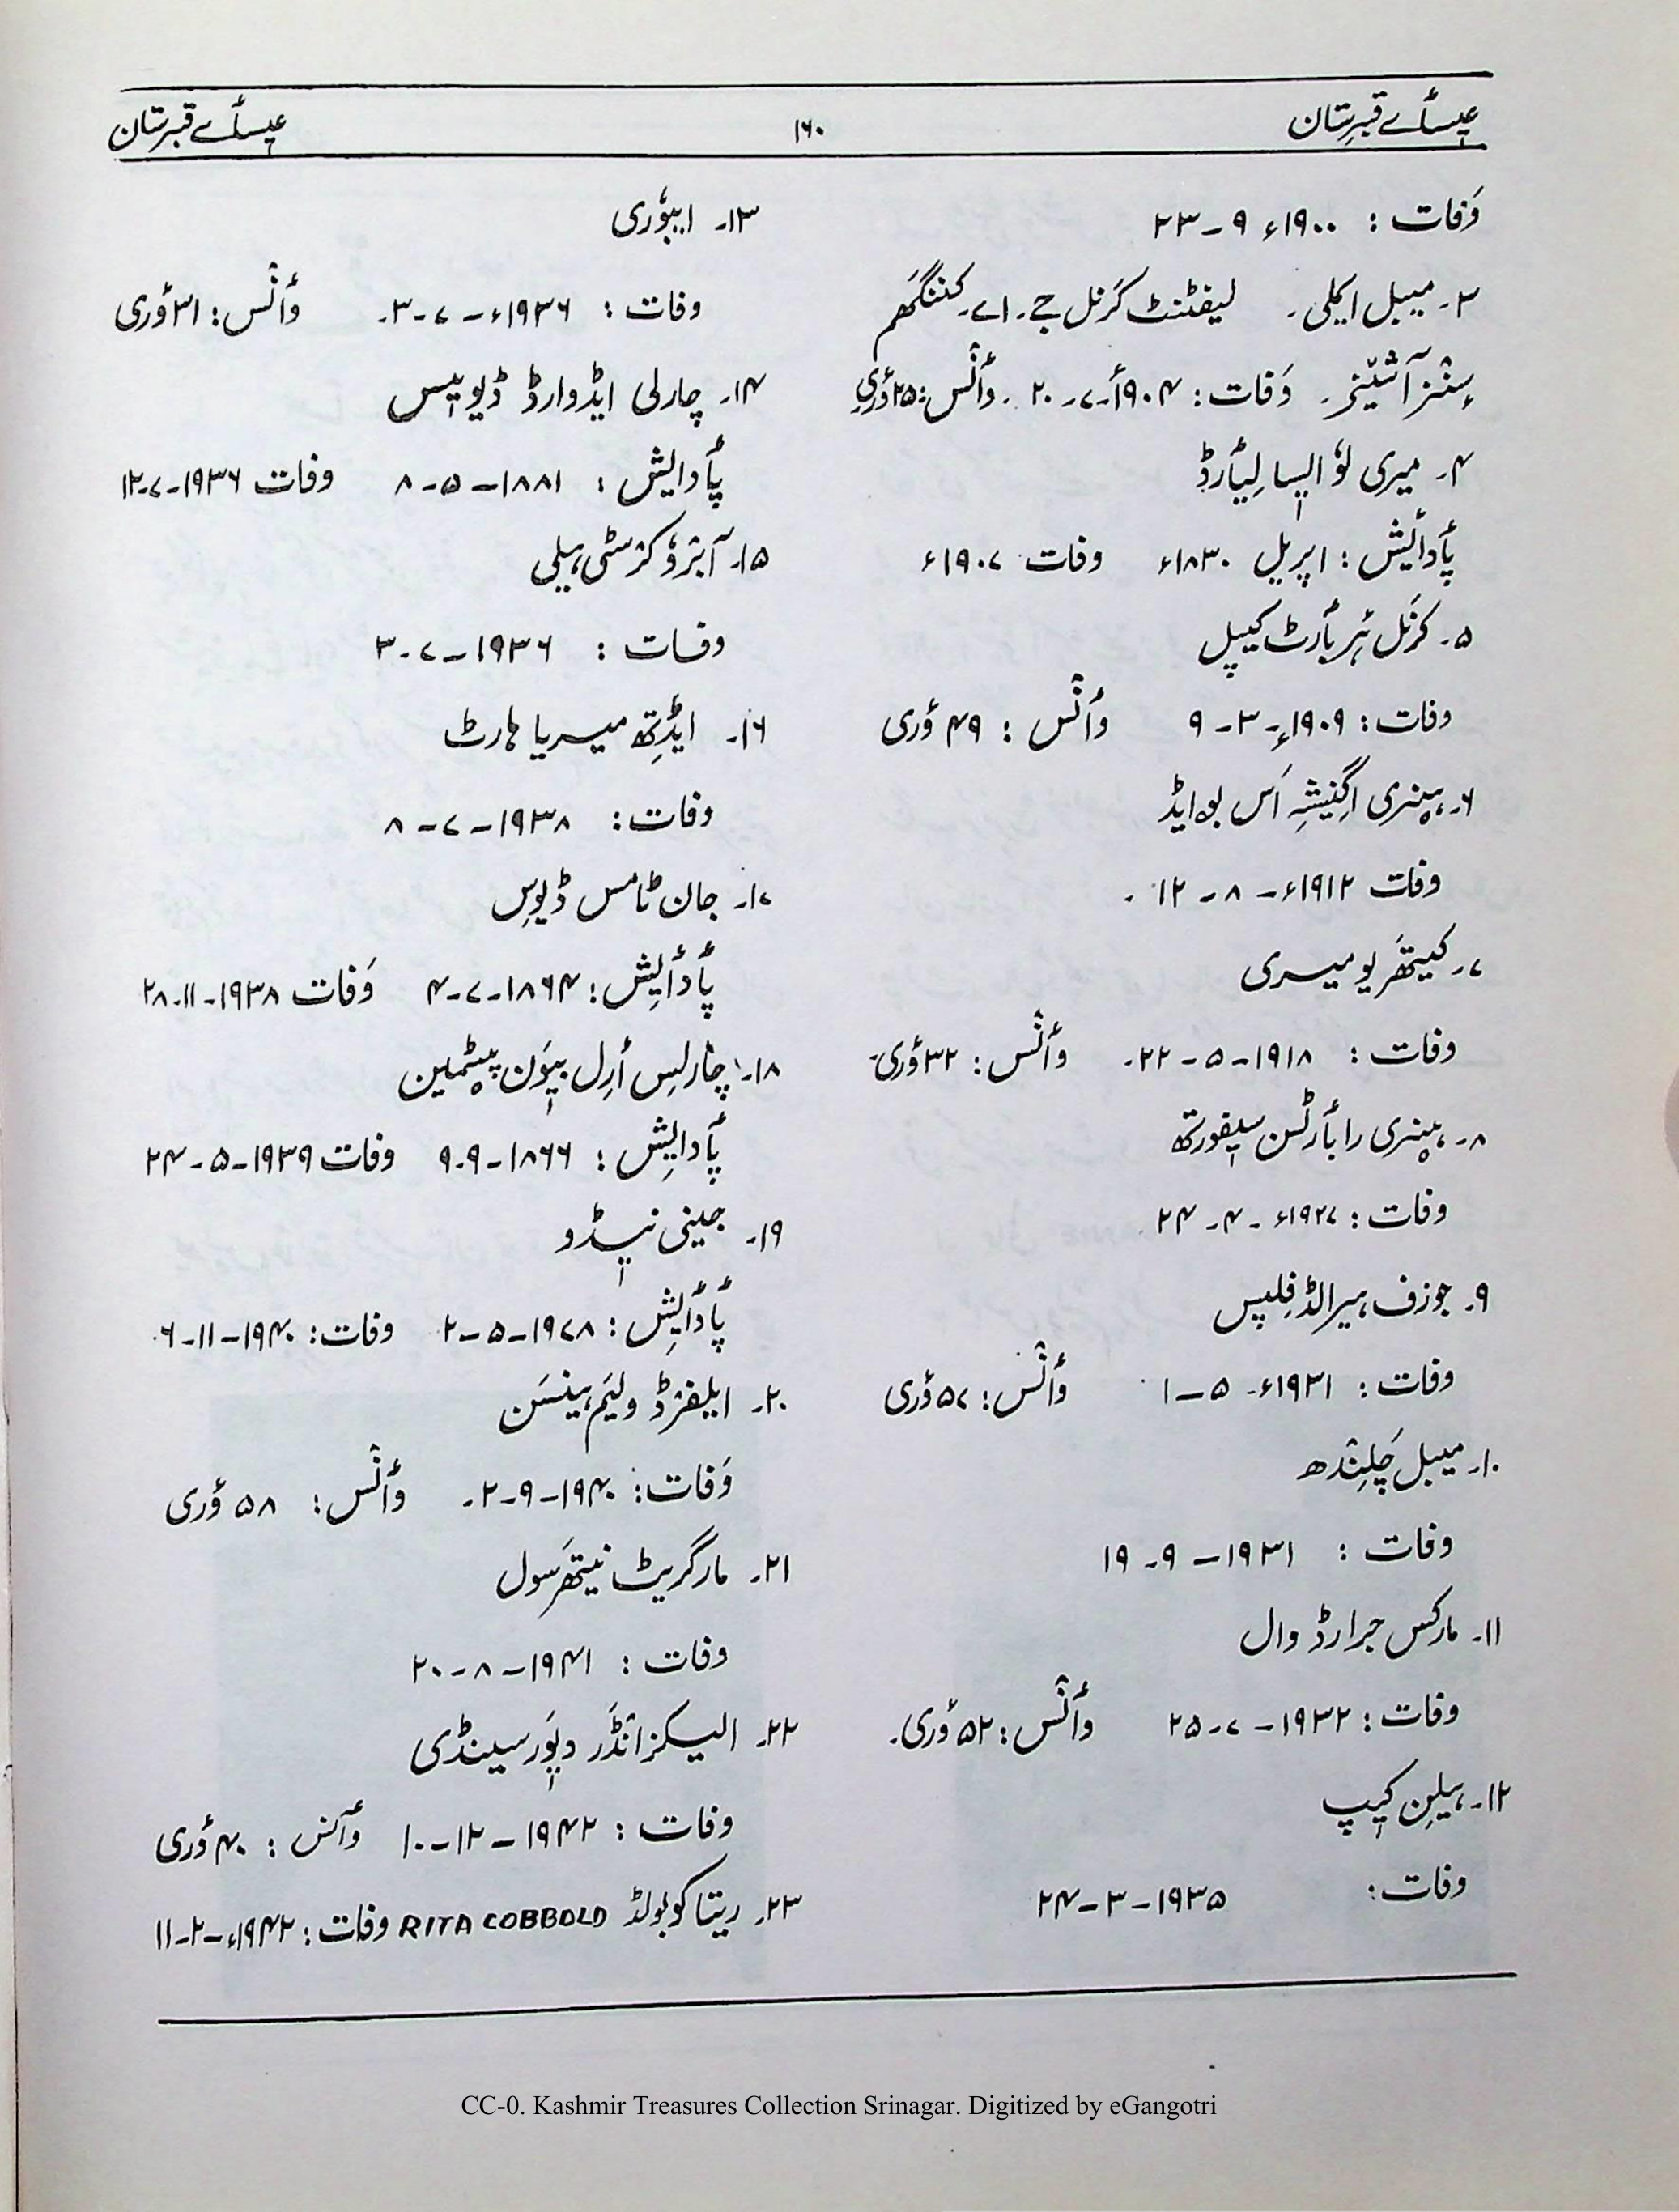 عیسٲے قبرستان
۱۶۰
عیسٲے قبرستان
وَفات : ۱۹۰۰ء ۹ – ۲۳
۳۔ میبل ایملی۔ لیفٹنٹ کرنل جے۔ اے۔ کننگھم
سٕنٛز آشیٚنز۔ وَفات : ۱۹۰۴ء-۷-۲۰ ۔ وٲنٛس : ۲۵ ؤری
۴۔ میری لوٗ ایسا لِیٲرڈ
پٲدٲیش : اپریل ۱۸۳۰ء وفات ۱۹۰۷ء
۵۔ کرنَل ہَر بٲرٹ کیپل
وفات : ۱۹۰۹ء-۳-۹ وٲنٛس : ۴۹ ؤری
۶۔ ہینری اگنِیشِہ اَس بوایڈ
وفات ۱۹۱۲ء-۸-۱۲ ۔
۷۔ کیتھَر یو میری
وفات : ۱۹۱۸-۵-۲۲۔ وٲنٛس : ۳۲ ؤری۔
۸۔ ہینری رابٲرٹسن سیفورتھ
وفات : ۱۹۲۷ء-۴-۲۴
۹۔ جوزف ہیرالڈ فِلپس
وفات : ۱۹۳۱ء-۵-۱ وٲنٛس : ۵۷ ؤری
۱۰۔ میبل چَلِنڈھ
وفات : ۱۹۳۱-۹-۱۹
۱۱۔ مارکس جرارڈ وال
وفات : ۱۹۳۲-۷-۲۵ وٲنٛس : ۵۲ ؤری۔
۱۲۔ ہیلِن کیپ
وفات : ۱۹۳۵-۳-۲۴
۱۳۔ ایبوٗری
وفات : ۱۹۳۶ء-۷-۳۰ وٲنٛس : ۳۱ ؤری
۱۴۔ چارلی ایڈوارڈ ڈیوِیس
پٲدایش : ۱۸۸۱-۵-۸ وفات ۱۹۳۶-۷-۱۲
۱۵۔ آبزوٗ کرسٹی ہیلی
وفات : ۱۹۳۶-۷-۳
۱۶۔ ایڈِتھ میریا ہارٹ
وفات : ۱۹۳۸-۷-۸
۱۷۔ جان ٹامس ڈیوِس
پٲدٲیِش : ۱۸۶۴-۷-۴ وَفات ۱۹۳۸-۱۱-۲۸
۱۸۔ چارلِس أرِل بیوَن پیٹمین
پٲدایِش : ۱۸۶۶-۹-۹ وفات ۱۹۳۹-۵-۲۴
۱۹۔ جینی نیڈو
پٲدٲیِش : ۱۹۷۸-۵-۲ وفات : ۱۹۴۰-۱۱-۶
۲۰۔ ایلفرڈ ولیَم ہینسَن
وَفات : ۱۹۴۰-۹-۲۔ وٲنٛس : ۵۸ ؤری
۲۱۔ مارگریٹ نیتھَرسول
وفات : ۱۹۴۱-۸-۲۰
۲۲۔ الیکزانڈَر وپَور سینڈی
وفات : ۱۹۴۲-۱۲-۱۰ وٲنس : ۴۰ ؤری
۲۳۔ ریتا کوبولڈ RITA COBBOLD وفات : ۱۹۴۲ء-۲-۱۱
CC-0. Kashmir Treasures Collection Srinagar. Digitized by eGangotri